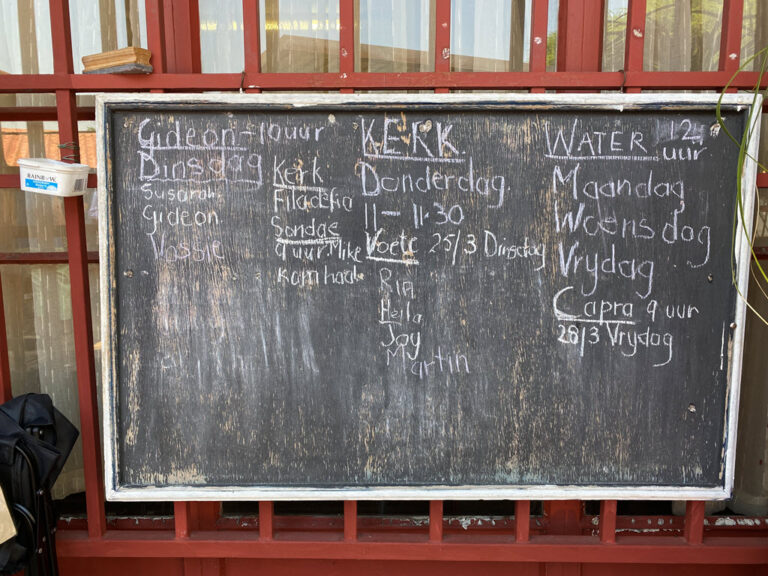 Gideon-10uur
Dinsdag
Susarah
Gideon
Vossie
Kerk
Filadefia
Sondag
9 uur. Mike
kom haal
KERK
Donderdag
11-11.30
Voete 25/3 Dinsdag
Ria
Heila
Joy
Martin
WATER 12
uur
Maandag
Woensdag
Vrydag
Capra 9 uur
28/3 Vrydag
RAINBOW